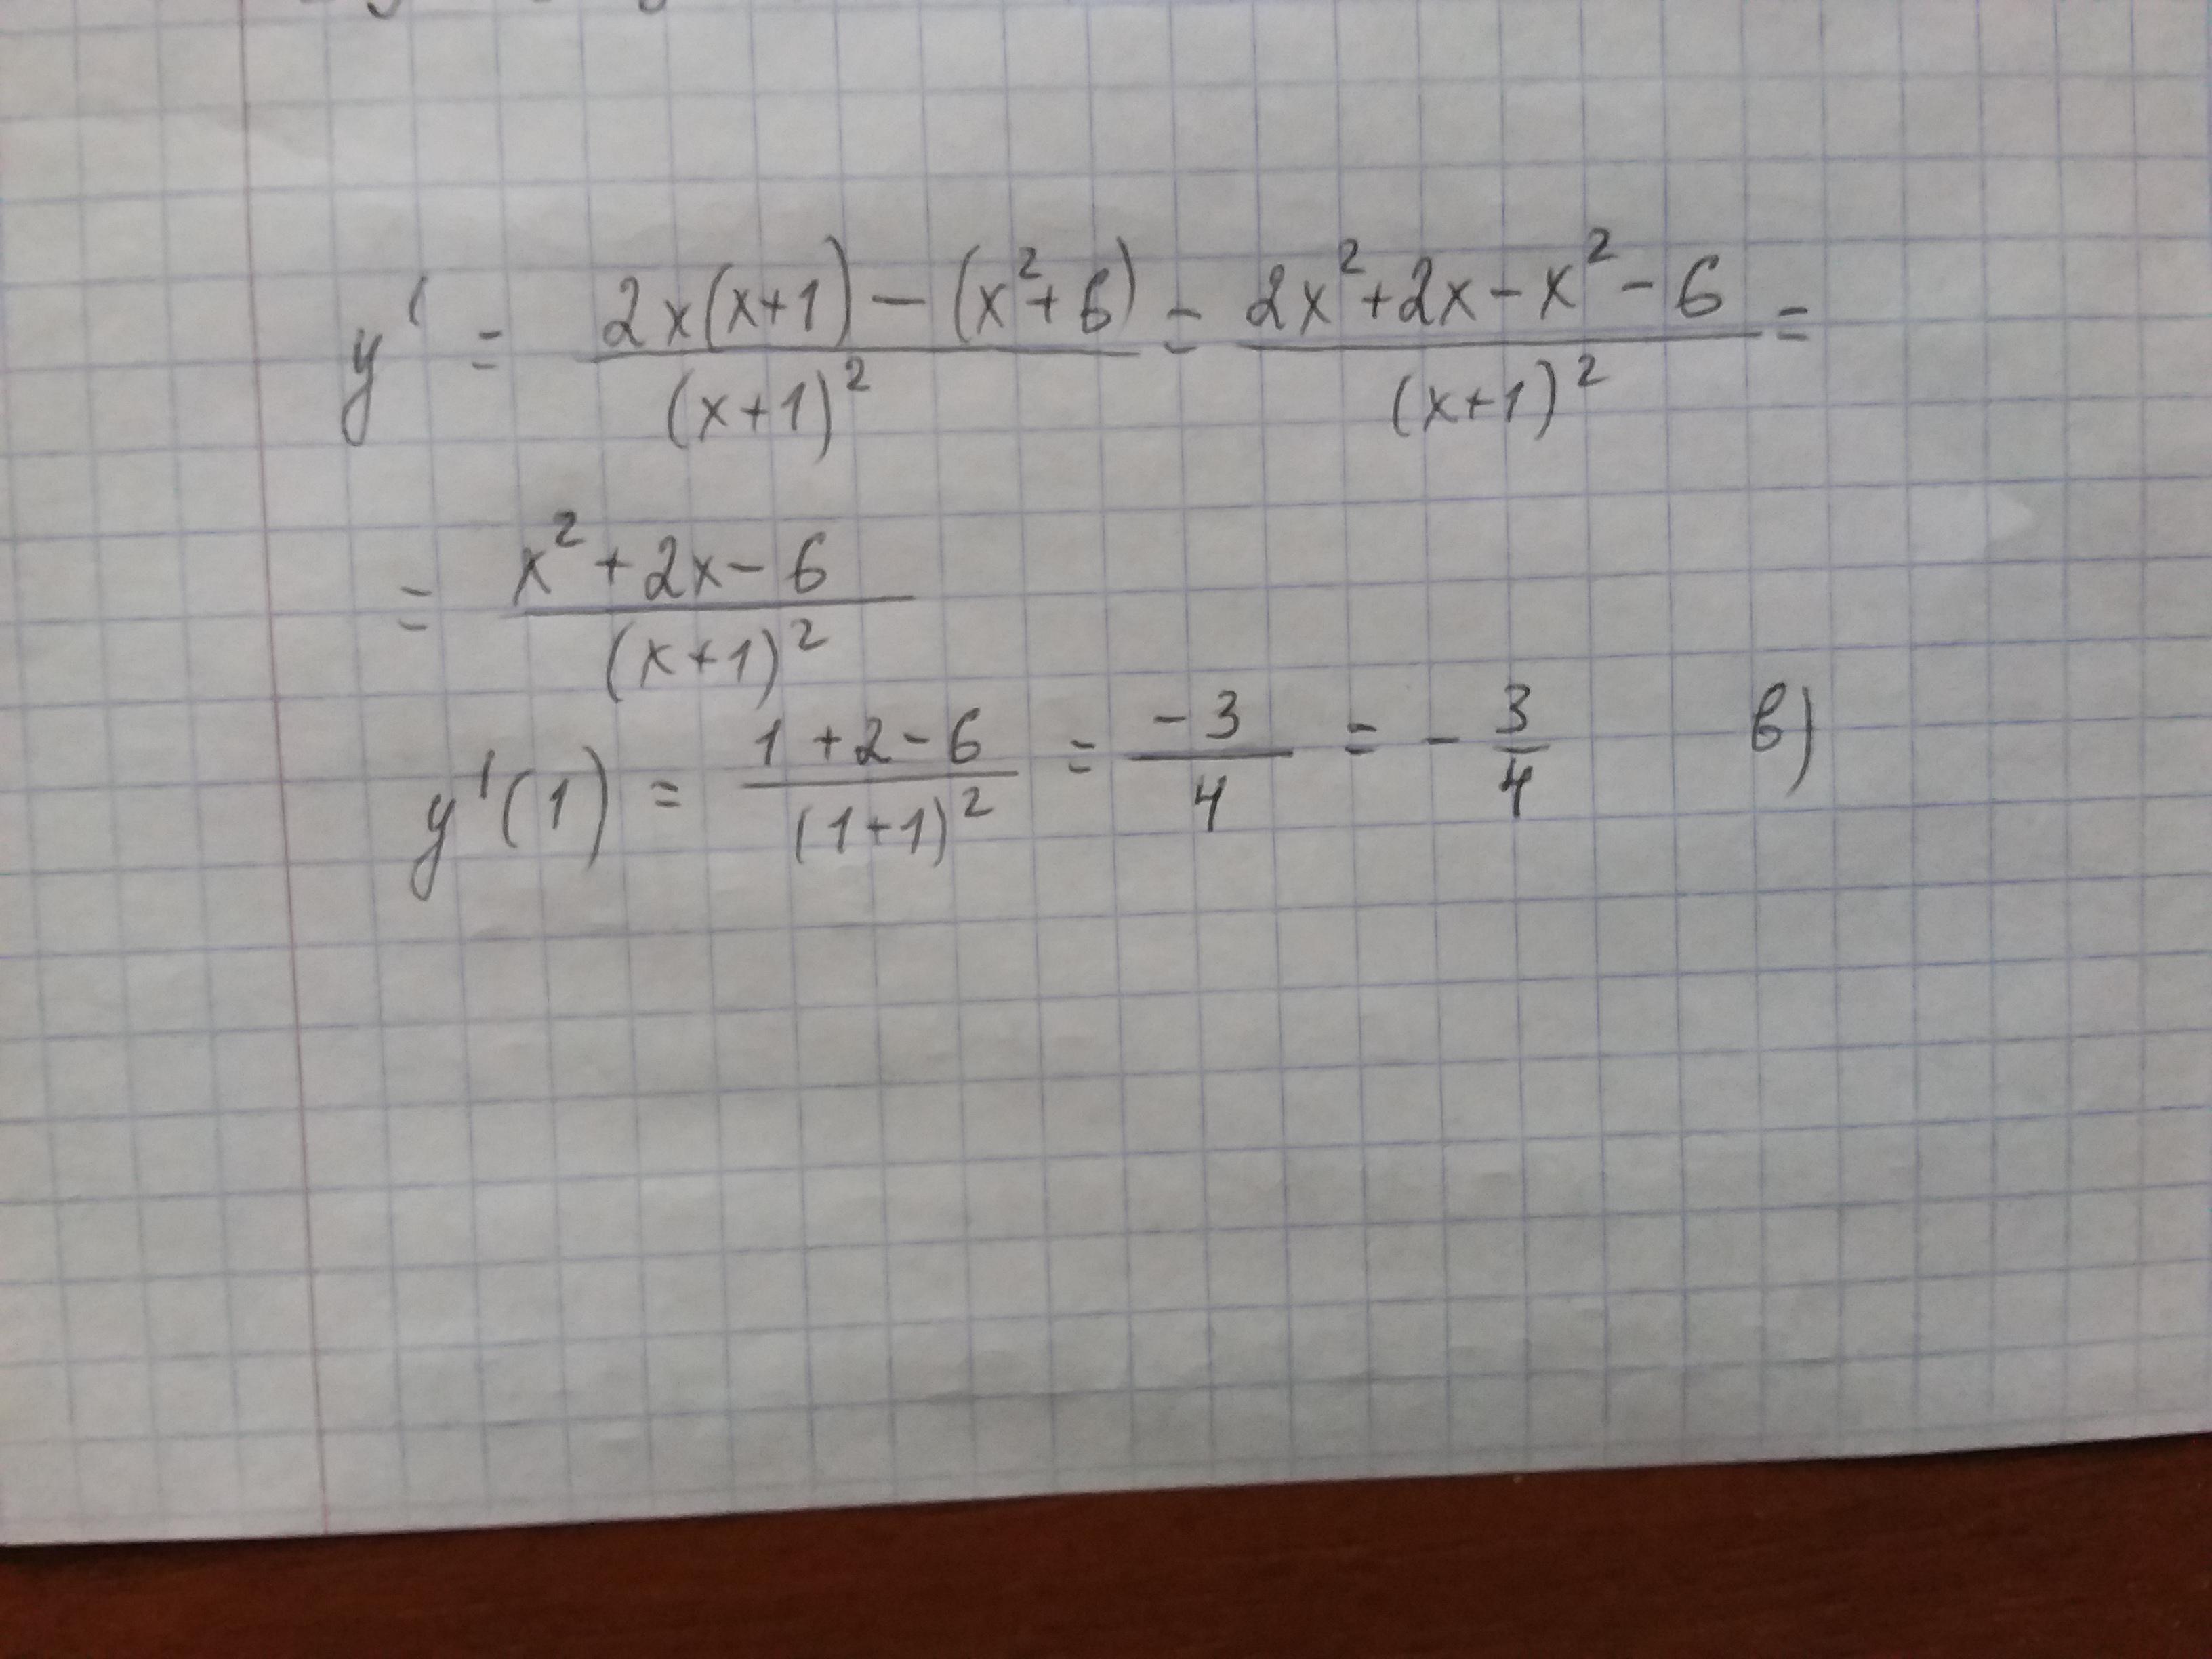 y' = (2x(x+1) − (x²+6))/(x+1)² = (2x²+2x−x²−6)/(x+1)² =
= (x²+2x−6)/(x+1)²
y'(1) = (1+2−6)/(1+1)² = −3/4 = −3/4 в)